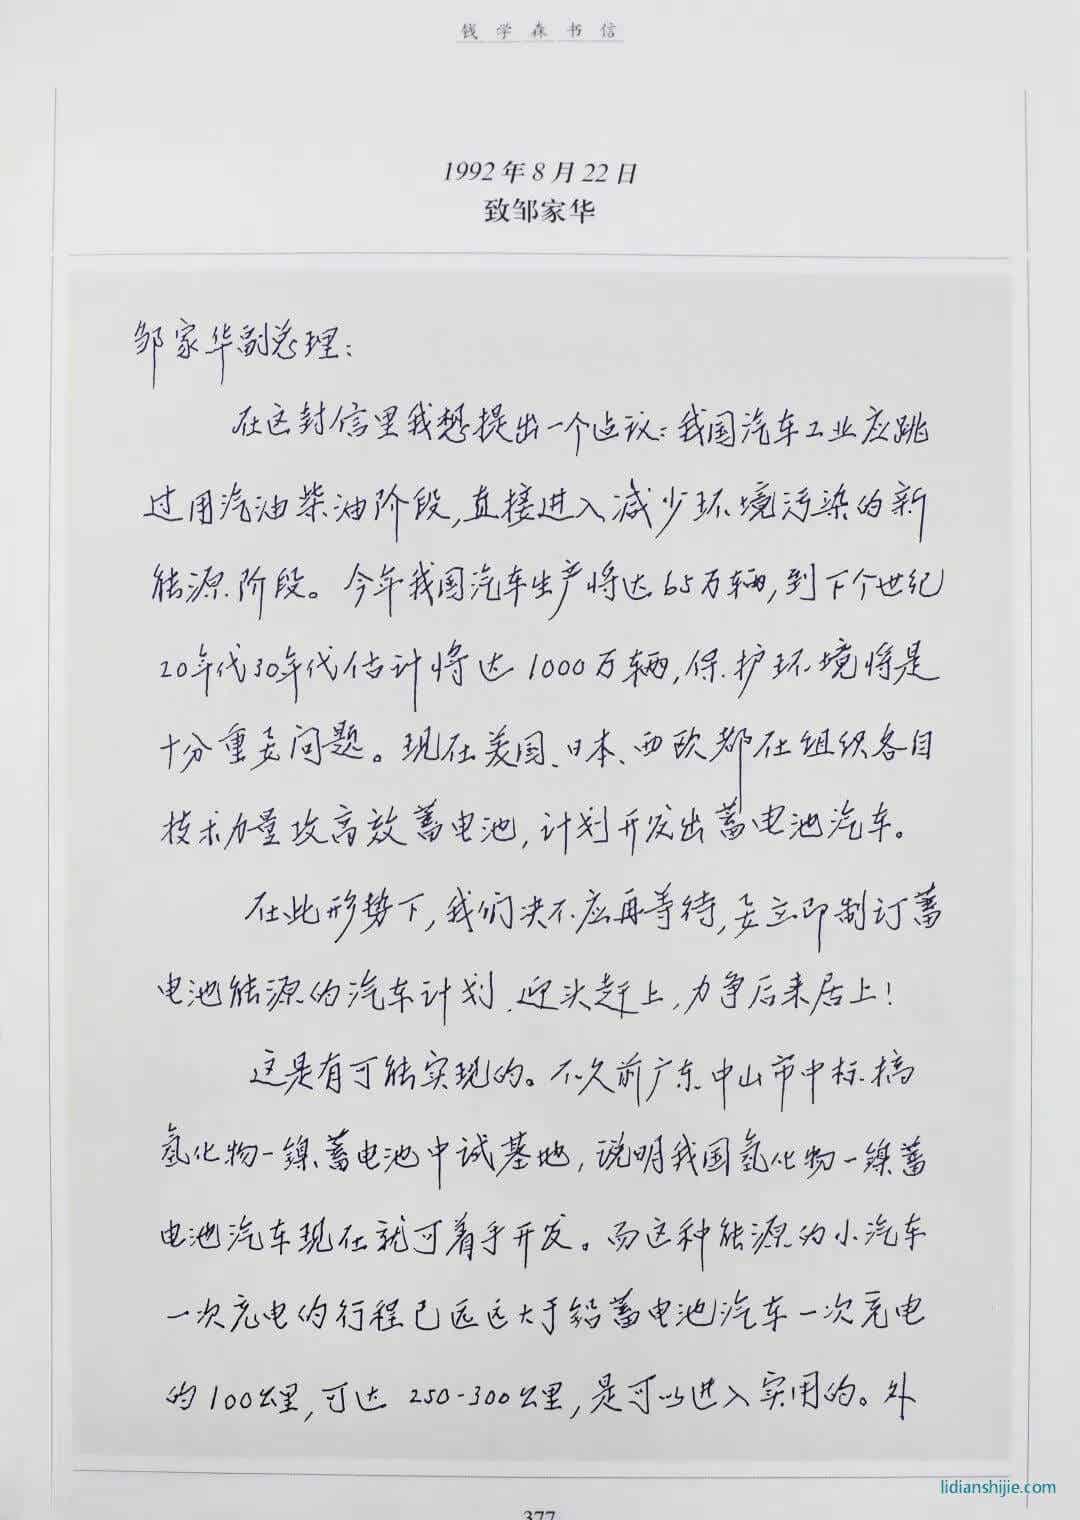 钱学森书信
1992年8月22日
致邹家华
邹家华副总理：
在这封信里我想提出一个建议：我国汽车工业应跳
过用汽油柴油阶段，直接进入减少环境污染的新
能源阶段。今年我国汽车生产将达65万辆，到下个世纪
20年代30年代估计将达1000万辆，保护环境将是
十分重要问题。现在美国、日本、西欧都在组织各自
技术力量攻高效蓄电池，计划开发出蓄电池汽车。
在此形势下，我们决不应再等待，要立即制订蓄
电池能源的汽车计划，迎头赶上，力争后来居上！
这是有可能实现的。不久前广东中山市中标搞
氢化物-镍蓄电池中试基地，说明我国氢化物-镍蓄
电池汽车现在就可着手开发。而这种能源的小汽车
一次充电的行程已远远大于铅蓄电池汽车一次充电
的100公里，可达250-300公里，是可以进入实用的。外
377
lidianshijie.com